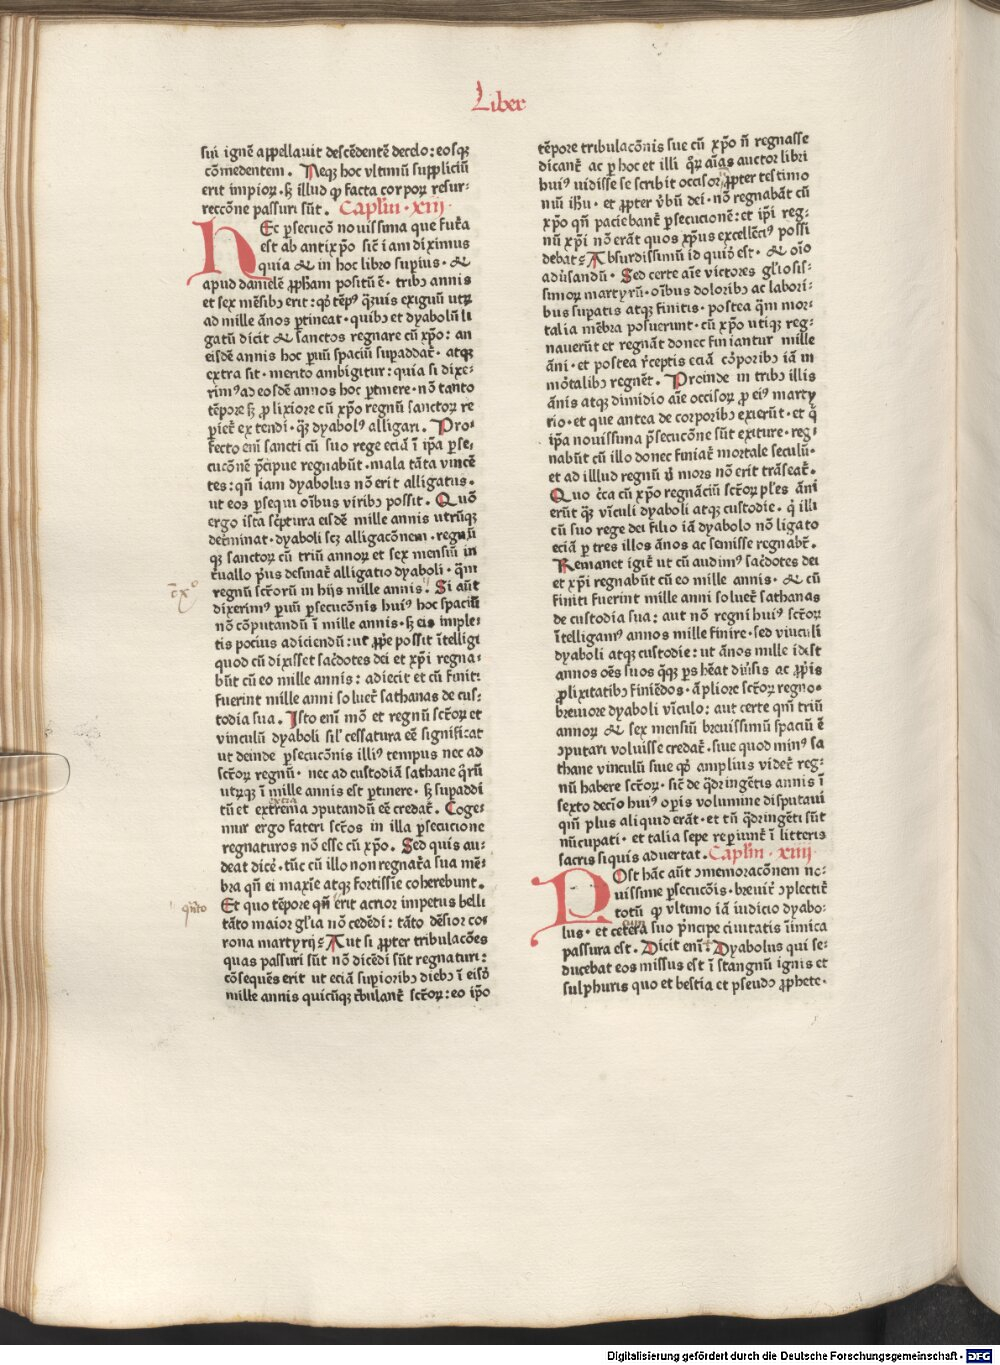 Liber
sui ignē appellauit descēdentē decelo: eosqꝫ
cōmedentem. Neqꝫ hoc vltimū suppliciū
erit impioꝝ. sꝫ illud qꝫ facta corpoꝝ resur-
reccōne passuri sūt. Caplm̄. xiij.
HEc ꝑsecucō nouissima que fut̄a
est ab antixp̄o sic̄ iam diximus
quia & in hoc libro suꝑius. &
apud danielē ꝓph̄am positū ē. tribꝫ annis
et sex mēsibꝫ erit: qd̓ tēpꝰ qͣꝫuis exiguū utꝝ
ad mille ānos ꝑtineat. quibꝫ et dyabolū li
gatū dicit & sanctos regnare cū xp̄o: an
eisdē annis hoc ꝑuū spaciū suꝑaddat̄. atqꝫ
extra sit. merito ambigitur: quia si dixe-
rimꝰ ad eosdē annos hoc ꝑtinere. nō tanto
tēpore sꝫ ꝓlixiore cū xp̄o regnū sanctoꝝ re
ꝑiet̄ extendi. qͣꝫ dyabolꝰ alligari. Pro-
fecto eni̅ sancti cū suo rege eciā ī ip̄a ꝑse-
cucōnē p̄cipue regnabūt. mala tāta vincē
tes: qn̄ iam dyabolus nō erit alligatus.
ut eos ꝑsequi oībus viribꝫ possit. Quō
ergo ista sc̄ptura eisdē mille annis utrūqꝫ
det̄minat. dyaboli scꝫ alligacōnem. regnū
qꝫ sanctoꝝ cū triū annoꝝ et sex mensiū in
t̄uallo p̄us desinat̄ alligatio dyaboli. qͣm
regnū sct̄orū in hijs mille annis. Si aūt
dixerimꝰ ꝑuū ꝑsecucōnis huiꝰ hoc spaciū
nō cōputandū ī mille annis. sꝫ eis imple-
tis pocius adiciendū: ut ꝓpe possit ītelligi
quod cū dixisset sac̄dotes dei et xp̄i regna-
būt cū eo mille annis: adiecit et cū finiti
fuerint mille anni soluet̄ sathanas de cus-
todia sua. Isto eni̅ mō et regnū sct̄oꝝ et
vinculū dyaboli sil̓ cessatura eē significat
ut deinde ꝑsecucōnis illiꝰ tempus nec ad
sct̄oꝝ regnū. nec ad custodiā sathane qͣrū
utꝝqꝫ ī mille annis est ꝑtinere. sꝫ suꝑaddi
tū et extrema ↄputandū eē credat̄. Coge-
mur ergo fateri sct̄os in illa ꝑsecucione
regnaturos nō esse cū xp̄o. Sed quis au-
deat dicē. tūc cū illo non regnat̄a sua mē-
bra qn̄ ei maxīe atqꝫ fortissīe coherebunt.
Et quo tēpore qn̄ erit acrior impetus belli
tāto maior gl̓ia nō cedēdi: tāto dēsior co-
rona martyrij? Aut si ꝓpter tribulacōes
quas passuri sūt nō dicēdi sūt regnaturi:
cōsequēs erit ut eciā suꝑioribꝫ diebꝫ ī eisd̓
mille annis quicūqꝫ t̄bulant̄ sct̄oꝝ: eo ip̄o
c̄xͦ
extra
qn̄to
tēpore tribulacōnis sue cū xp̄o n̄ regnasse
dicant̄ ac ꝑ hoc et illi qͦꝝ aīas auctor libri
huiꝰ uidisse se scribit occisoꝝ ꝓpter testimo
niū ih̄u. et ꝓpter v̓bū dei. nō regnabāt cū
xp̄o qn̄ paciebant̄ ꝑsecucionē: et ip̄i reg-
nū xp̄i nō erāt quos xp̄us excellēciꝰ possi
debat? Absurdissimū id quid̓ est. & oīo
adu̓sandū. Sed certe aīe victores gl̓iosis-
simoꝝ martyrū. oībus doloribꝫ ac labori-
bus suꝑatis atqꝫ finitis. postea qͣm mor-
talia mēbra posuerunt. cū xp̄o utiqꝫ reg-
nauerūt et regnāt donec finiantur mille
āni. et postea r̄ceptis eciā cōporibꝫ iā in
mōtalibꝫ regnēt. Proinde in tribꝫ illis
ānis atqꝫ dimidio aīe occisoꝝ ꝓ eiꝰ marty
rio. et que antea de corporibꝫ exierūt. et q̄
ip̄a nouissima p̄secucōne sūt exiture. reg-
nabūt cū illo donec finiat̄ mortale seculū.
et ad illlud regnū u̓ mors nō erit trāseat̄.
Quo c̄ca cū xp̄o regnāciū sct̄oꝝ pl̓es āni
erūt qͣꝫ vīculi dyaboli atqꝫ custodie. q̄ illi
cū suo rege dei filio iā dyabolo nō ligato
eciā ꝑ tres illos ānos ac semisse regnabt̄.
Remanet igit̄ ut cū audimꝰ sac̄dotes dei
et xp̄i regnabūt cū eo mille annis. & cū
finiti fuerint mille anni soluet̄ sathanas
de custodia sua: aut nō regni huiꝰ sct̄oꝝ
ītelligamꝰ annos mille finire. sed vinculi
dyaboli atqꝫ custodie: ut ānos mille id est
annos oēs suos qͣqꝫ ꝑs hēat diu̓sis ac ꝓp̓is
ꝓlixitatibꝫ finiēdos. āpliore sct̄oꝝ regno.
breuiore dyaboli vīculo: aut certe qm̄ triū
annoꝝ & sex mensiū breuissimū spaciū ē
ↄputari voluisse credat̄. siue quod minꝰ sa
thane vinculū siue qd̓ amplius videt̄ reg-
nū habere sct̄oꝝ. sic̄ de qͣdringētis annis ī
sexto decīo huiꝰ oꝑis volumine disputaui
qm̄ plus aliquid erāt. et tn̄ qͣdringēti sūt
nūcupati. et talia sepe reꝑiunt̄ ī litteris
sacris siquis aduertat. Caplm̄. xiiij.
POst hāc aūt ↄmemoracōnem no-
uissime ꝑsecucōis. breuit̄ ↄplectit̄
totū qꝫ vltimo iā iudicio dyabo-
lus. et cetera suo p̄ncipe ciuitatis inīmica
passura est. Dicit eni̅. Dyabolus qui se-
ducebat eos missus est ī stangnū ignis et
sulphuris quo et bestia et pseudoↄ ꝓphete.
Digitalisierung gefördert durch die Deutsche Forschungsgemeinschaft - DFG